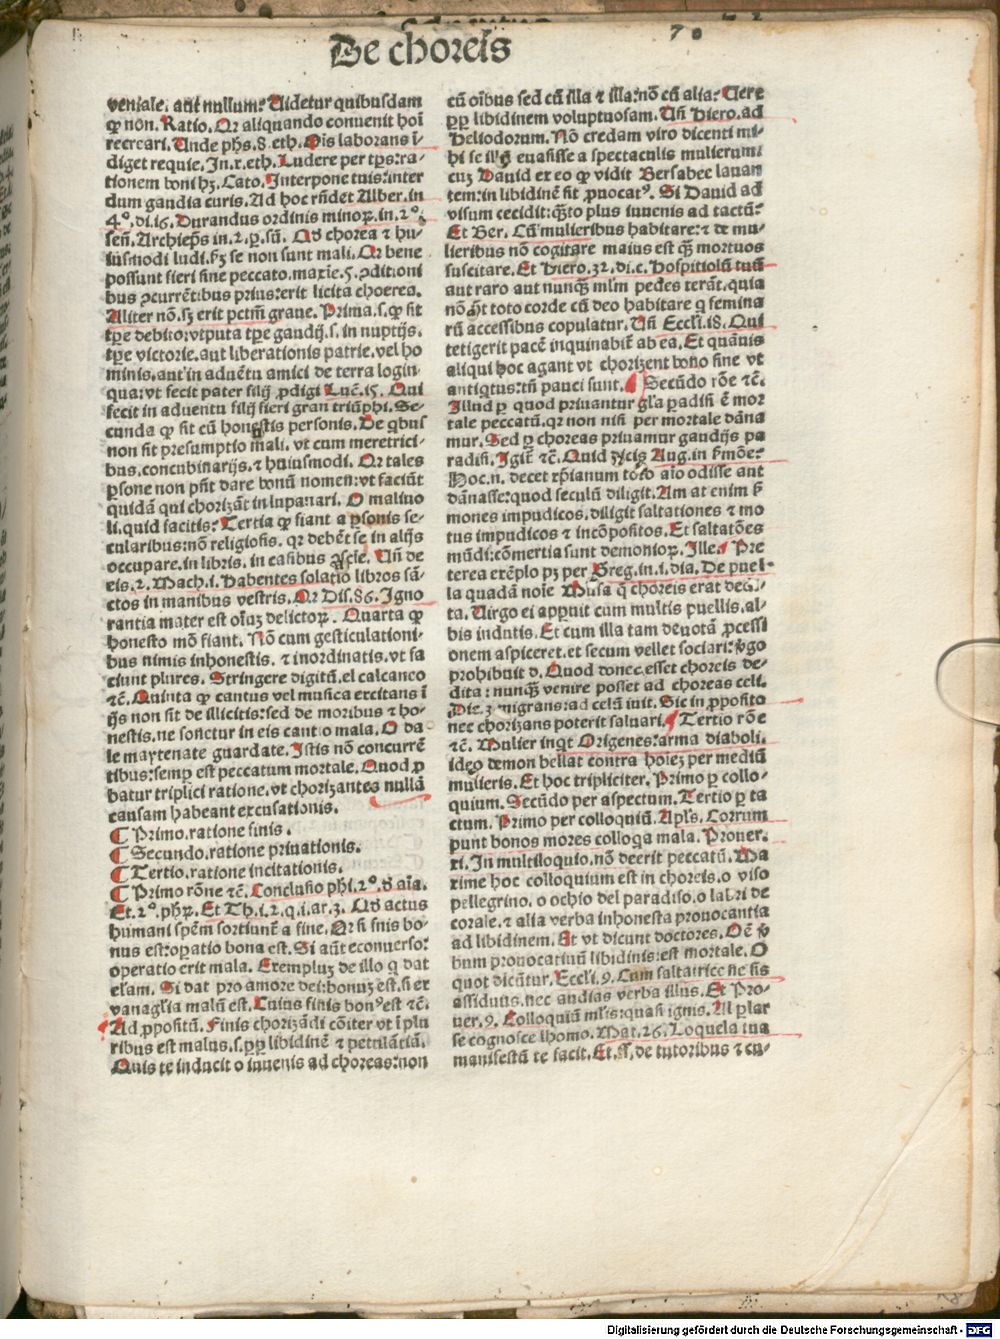 De choreis
70
veniale. aut nullum? Uidetur quibusdam
ꝙ non. Ratio. Qꝛ aliquando conuenit hoĩ
recreari. Unde phs. 8. eth. Oĩs laborans ĩ-
diget requie. In. x. eth. Ludere per tp̃s: ra-
tionem boni hꝫ. Cato. Interpone tuis: inter
dum gaudia curis. Ad hoc rñdet Alber. in
4°. di. 16. Durandus ordinis minoꝝ. in. 2°.
señ. Archiep̃s in. 2. p. sũ. Qđ chorea ⁊ hu-
iusmodi ludi. ẜm se non sunt mali. Qꝛ bene
possunt fieri sine peccato. maxie. 5. ꝯditioni
bus ꝯcurrẽtibus prius: erit licita choerea.
Aliter nõ. sꝫ erit pctm̃ graue. Prima. s. ꝙ fit
tp̃e debito: vtputa tp̃e gaudij. s. in nuptijs.
tp̃e victorie. aut liberationis patrie. vel ho
minis. aut in aduẽtu amici de terra login-
qua: vt fecit pater filij ꝓdigi Luc̃. 15. Qui
fecit in aduentu filij fieri gran triũphi. Se-
cunda ꝙ fit cũ honestis personis. De qbus
non fit presumptio mali. vt cum meretrici-
bus. concubinarijs. ⁊ huiusmodi. Qꝛ tales
ꝑsone non pñt dare bonũ nomen: vt faciũt
quidã qui chorizãt in lupanari. O maliuo
li. quid facitis? Tertia ꝙ fiant a ꝑsonis se-
cularibus: nõ religiosis. qꝛ debẽt se in alijs
occupare. in libris. in casibus ꝯscie. Uñ de
eis. 2. Mach. i. Habentes solatio libros sã-
ctos in manibus vestris. Qꝛ Dis. 86. Igno
rantia mater est oĩuꝫ delictoꝝ. Quarta ꝙ
honesto mõ fiant. Nõ cum gesticulationi-
bus nimis inhonestis. ⁊ inordinatis. vt fa
ciunt plures. Stringere digitũ. el calcanco
⁊c̃. Quinta ꝙ cantus vel musica excitans ĩ
ijs non sit de illicitis: sed de moribus ⁊ ho-
nestis. ne sonetur in eis canto mala. O da-
le maytenate guardate. Istis nõ concurrẽ
tibus: semꝑ est peccatum mortale. Quod ꝓ
batur triplici ratione. vt chorizantes nullã
causam habeant excusationis.
¶ Primo. ratione finis.
¶ Secundo. ratione priuationis.
¶ Tertio. ratione incitationis.
¶ Primo rõne ⁊c̃. Conclusio phi. 2°. đ aĩa.
Et. 2°. phꝝ. Et Th. i. 2. q. i. ar. 3. Qđ actus
humani spẽm sortiunt̃ a fine. Qꝛ si finis bo-
nus est: oꝑatio bona est. Si aũt econuerso:
operatio erit mala. Exempluꝫ de illo q dat
elãm. Si dat pro amore dei: bonuꝫ est. si ex
vanagl̃ia malũ est. Cuius finis bonꝰ est ⁊c̃.
Ad ꝓpositũ. Finis chorizãdi cõiter vt ĩ plu
ribus est malus. s. ꝓpꝑ libidinẽ ⁊ petulãtiã.
Quis te inducit o iuuenis ad choreas: non
cũ oĩbus sed cũ illa ⁊ illa: nõ cũ alia? Uere
ꝓpꝑ libidinem voluptuosam. Uñ Hiero. ad
Heliodorum. Nõ credam viro dicenti mi-
hi se illꝰ euasisse a spectaculis mulierum:
cuꝫ Dauid ex eo ꝙ vidit Bersabee lauan
tem: in libidinẽ sit ꝓuocatꝰ. Si Dauid ad
visum cecidit: q̃to plus iuuenis ad tactũ?
Et Ber. Cũ mulieribus habitare: ⁊ de mu-
lieribus nõ cogitare maius est q̃ꝫ mortuos
suscitare. Et Hiero. 32. di. c. Hospitiolũ tuũ
aut raro aut nunq̃ꝫ mlm̃ pedes terãt. quia
nõ põt toto corde cũ deo habitare q femina
rũ accessibus copulatur. Uñ Eccl̃i. 18. Qui
tetigerit picẽ inquinabit̃ ab ea. Et quãuis
aliqui hoc agant vt chorizent bono fine vt
antiqtus: tñ pauci sunt. ¶ Secũdo rõe ⁊c̃.
Illud ꝑ quod priuantur gl̃a paradisi ẽ mor
tale peccatũ. qꝛ non nisi per mortale dãna
mur. Sed ꝑ choreas priuamur gaudijs pa
radisi. Igit̃ ⁊c̃. Quid dicis Aug. in ẜmõe?
Hoc. n. decet xp̃ianum toto aĩo odisse aut
dãnasse: quod seculũ diligit. Amat enim ẜ
mones impudicos. diligit saltationes ⁊ mo
tus impudicos ⁊ incõpositos. Et saltatões
mũdi: cõmertia sunt demonioꝝ. Ille. ¶ Pre
terea exẽplo pꝫ per Greg. in. i. dia. De puel-
la quadã noĩe Musa q̃ choreis erat dedi-
ta. Uirgo ei apꝑuit cum multis puellis. al-
bis indutis. Et cum illa tam deuotã ꝓcessi
onem aspiceret. et secum vellet sociari: ṽgo
prohibuit đ. Quod donec esset choreis de-
dita: nunq̃ꝫ venire posset ad choreas celi.
Die. 3 migrans: ad celũ iuit. Sic in ꝓposito
nec chorizans poterit saluari. ¶ Tertio rõe
⁊c̃. Mulier inqt Origenes: arma diaboli.
ideo demon bellat contra hoĩez per mediũ
mulieris. Et hoc tripliciter. Primo ꝑ collo-
quium. Secũdo per aspectum. Tertio ꝑ ta
ctum. Primo per colloquiũ. Apl̃s. Corrum
punt bonos mores colloqa mala. Prouer.
xi. In multiloquio. nõ deerit peccatũ. Ma
xime hoc colloquium est in choreis. o viso
pellegrino. o ochio del paradiso. o labri de
corale. ⁊ alia verba inhonesta prouocantia
ad libidinem. Et vt dicunt doctores. Oẽ ṽ
bum prouocatiuũ libidinis: est mortale. O
quot dicũtur. Eccl̃i. 9. Cum saltatrice ne sis
assiduus. nec audias verba illius. Et Pro-
uer. 9. Colloquiũ ml̃is: quasi ignis. Al ꝑlar
se cognosce lhomo. Mat. 26. Loquela tua
manifestũ te facit. Et. ff. de tutoribus ⁊ cu-
Digitalisierung gefördert durch die Deutsche Forschungsgemeinschaft - DFG